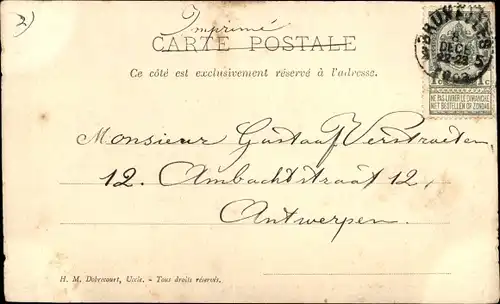 2)
Imprimé
CARTE POSTALE
Ce côté est exclusivement réservé à l'adresse.
BRUXELLES 5
DECE
22-23
1c 1c
NE PAS LIVRER LE DIMANCHE
NIET BESTELLEN OP ZONDAG
Monsieur Gustaaf Verstraeten
12. Ambachtstraat 12,
Antwerpen.
H. M. Dobrecourt, Uccle. - Tous droits réservés.